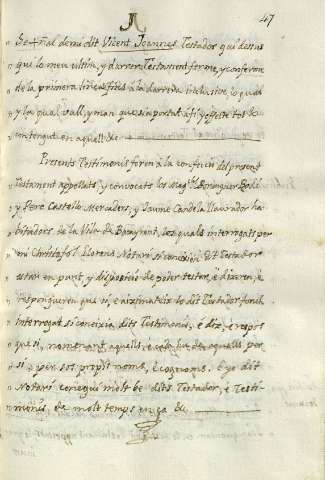 47
Se+ñal de mi dit Vicent Joannes Testador qui desus
que lo meu ultim, y darrer Testament ferme, y conferme
de la primera linea fins a la darrera inclusive, lo qual
y la qual vull, y man que sia portat a fi, y effecte tot lo
contengut en aquell &c.
Presents Testimonis foren a la confecio del present
Testament appellats, y convocats los Mag.chs Berenguer
y Pere Castello Mercaders, y Jaume Candela llaurador ha-
bitadors de la Vila de Bocayrent, los quals interrogats per
mi Christofol Llorens Notari si coneixien dit Testador
estar en punt, y disposicio de poder testar, e dixeren, e
respongueren que si, e aixi mateix lo dit Testador fonch
interrogat si coneixia dits Testimonis, e dix, e respos
que si, nomenant aquells, e cada hu de aquells per
si, e per sos propis noms, e cognoms. e yo dit
Notari conegui molt be dits Testador, e Testi-
monis, de molt temps en ça &c.